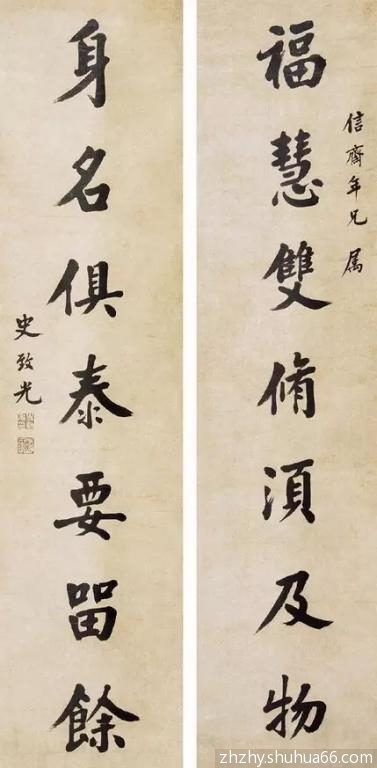 信齋年兄属
福慧雙脩湏及物
身名俱泰要畱餘
史致光
zhzhyshuhua66.com